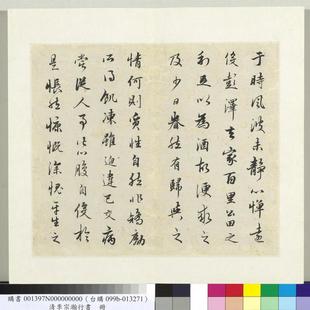 于時風波未靜心憚遠
役彭澤去家百里公田之
利足以為酒故便求之
及少日眷然有歸與之
情何則質性自然非矯勵
所得飢凍雖迫違己交病
嘗從人事皆口腹自役於
是悵然慷慨深愧平生之
購書 001397N000000000 (台購 099b-013271)
清李宗瀚行書 冊